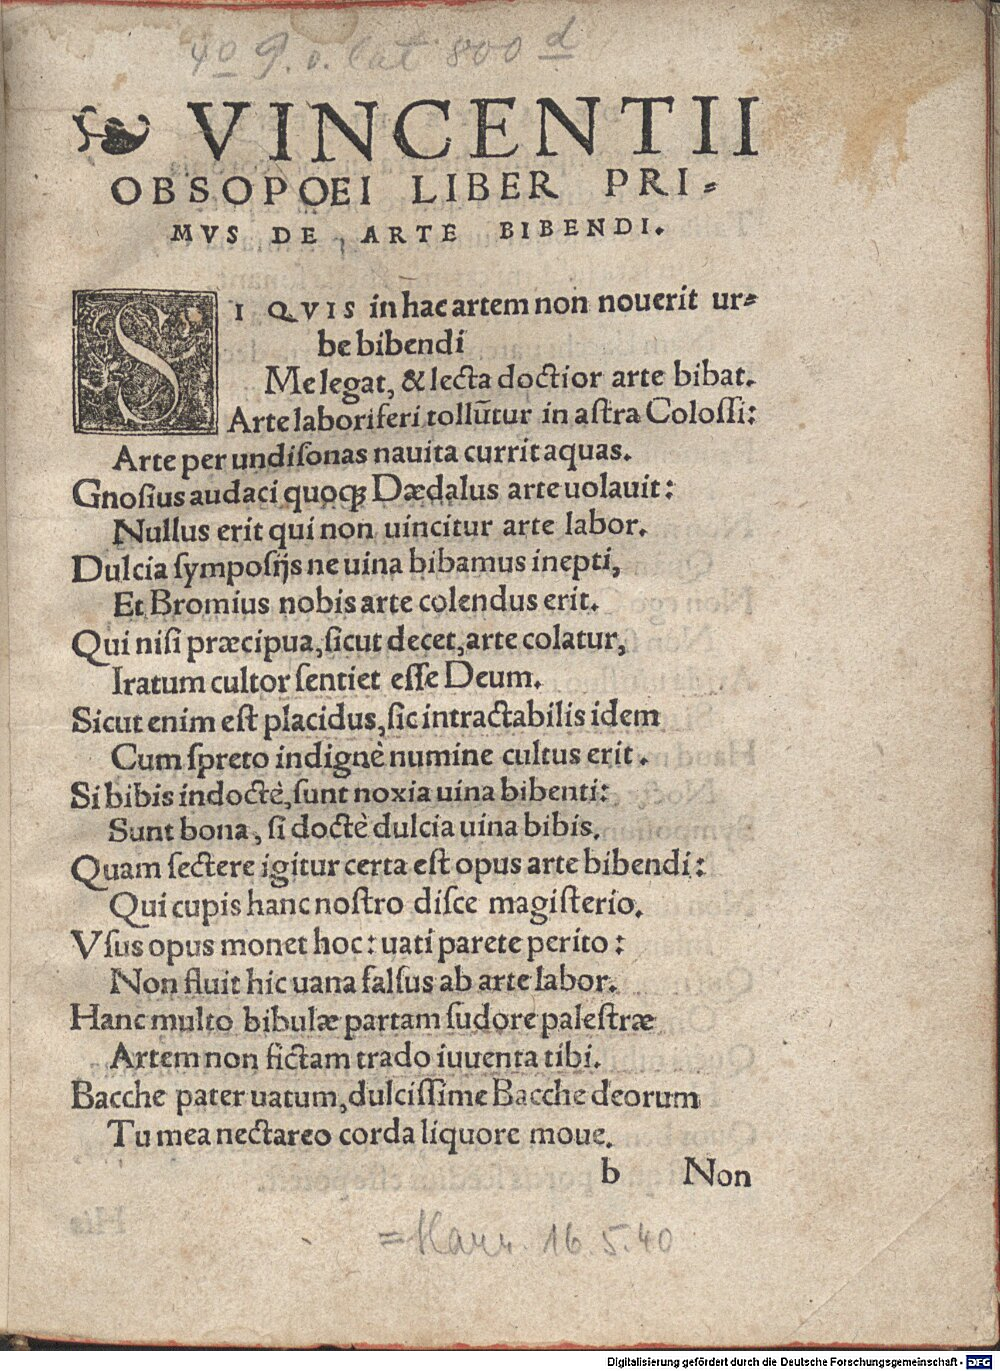 4o P. o. lat 800 d
VINCENTII
OBSOPOEI LIBER PRI-
MVS DE ARTE BIBENDI.
SI QVIS in hac artem non nouerit ur-
be bibendi
Me legat, & lecta doctior arte bibat.
Arte laboriferi tollũtur in astra Colossi:
Arte per undisonas nauita currit aquas.
Gnosius audaci quoqꝫ Dædalus arte uolauit:
Nullus erit qui non uincitur arte labor.
Dulcia symposijs ne uina bibamus inepti,
Et Bromius nobis arte colendus erit.
Qui nisi præcipua, sicut decet, arte colatur,
Iratum cultor sentiet esse Deum.
Sicut enim est placidus, sic intractabilis idem
Cum spreto indignè numine cultus erit.
Si bibis indoctè, sunt noxia uina bibenti:
Sunt bona, si doctè dulcia uina bibis.
Quam sectere igitur certa est opus arte bibendi:
Qui cupis hanc nostro disce magisterio.
Vsus opus monet hoc: uati parete perito:
Non fluit hic uana falsus ab arte labor.
Hanc multo bibulæ partam sudore palestræ
Artem non fictam trado iuuenta tibi.
Bacche pater uatum, dulcissime Bacche deorum
Tu mea nectareo corda liquore moue.
b Non
16.5.40
Digitalisierung gefördert durch die Deutsche Forschungsgemeinschaft - DFG